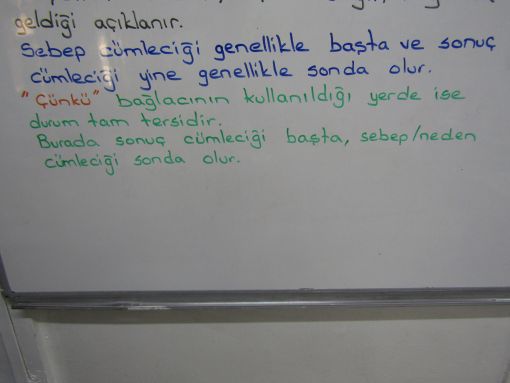 geldiği açıklanır.
Sebep cümleciği genellikle başta ve sonuç
cümleciği yine genellikle sonda olur.
"Çünkü" bağlacının kullanıldığı yerde ise
durum tam tersidir.
Burada sonuç cümleciği başta, sebep/neden
cümleciği sonda olur.